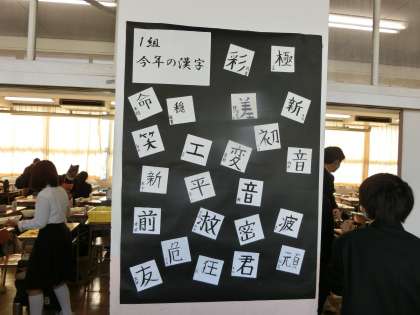 1組
今年の漢字
彩
極
命
穏
差
新
笑
工
変
初
音
新
平
音
前
救
密
疲
友
危
任
君
頑